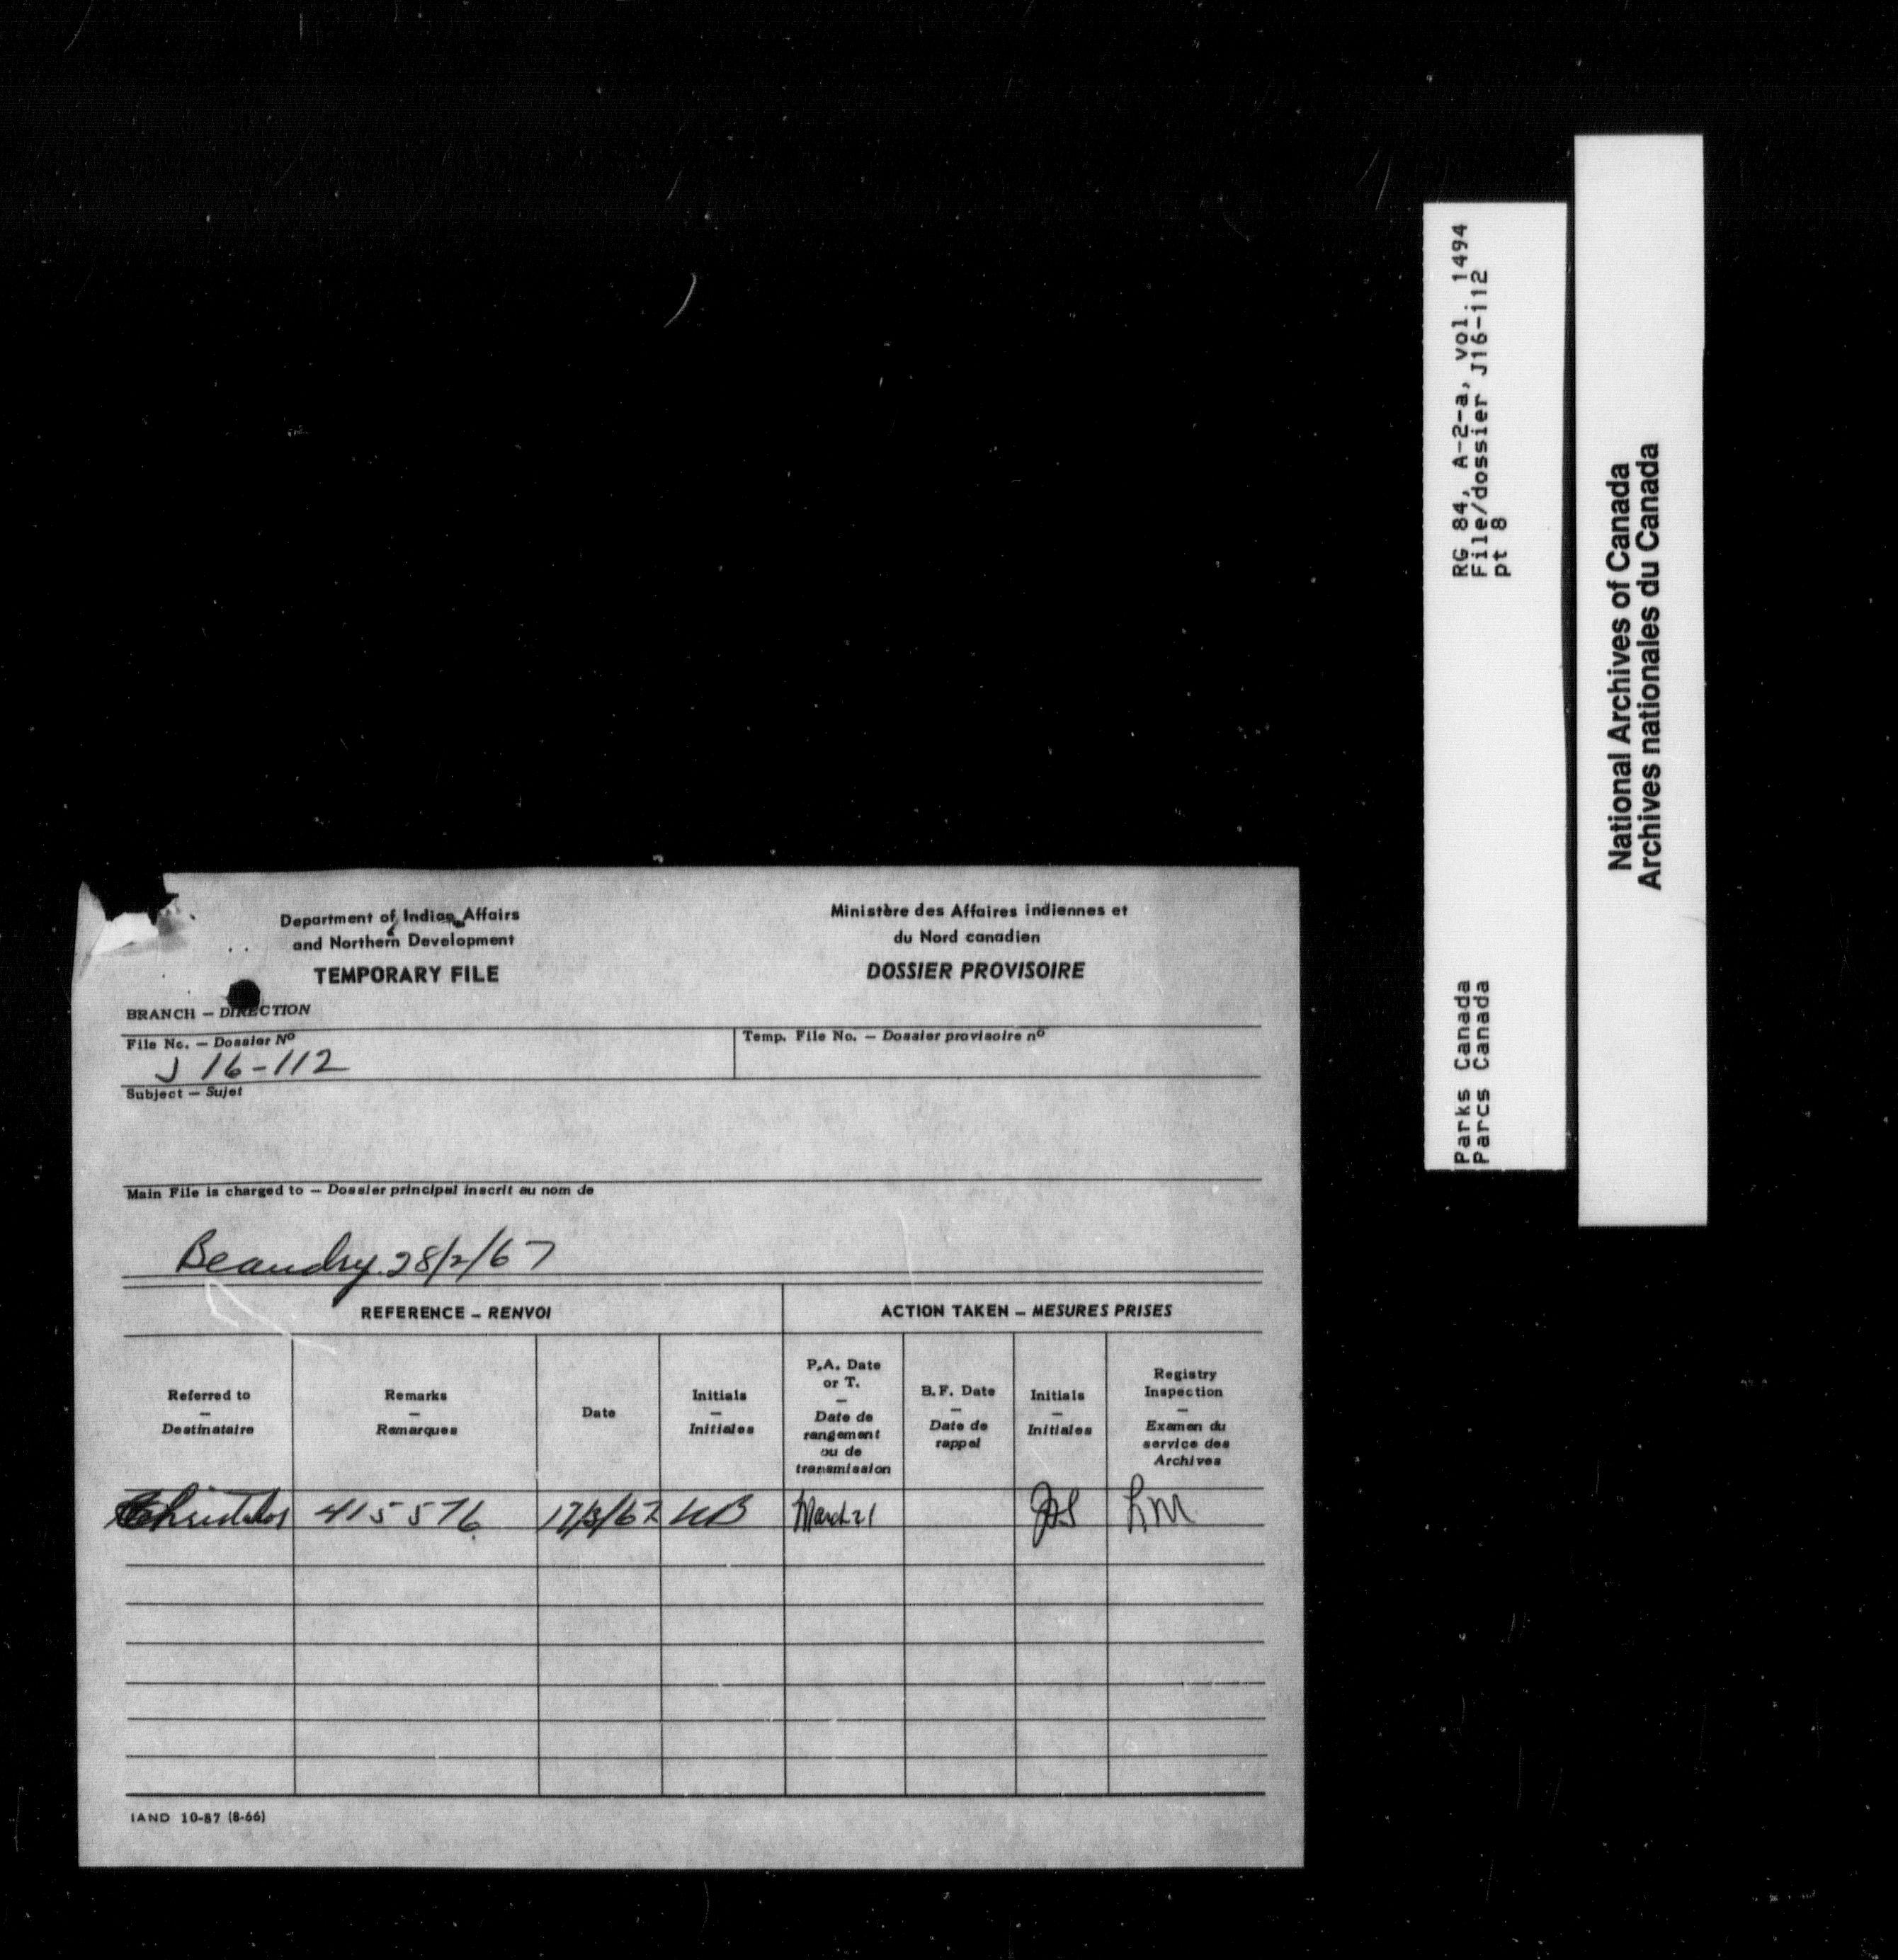 Department of Indian Affairs
and Northern Development
TEMPORARY FILE
Ministère des Affaires indiennes et
du Nord canadien
DOSSIER PROVISOIRE
BRANCH — DIRECTION
File No. — Dossier Nº
J 16-112
Temp. File No. — Dossier provisoire nº
Subject — Sujet
Main File is charged to — Dossier principal inscrit au nom de
Beaudry 28/2/67
REFERENCE — RENVOI
ACTION TAKEN — MESURES PRISES
Referred to
—
Destinataire
Remarks
—
Remarques
Date
Initials
—
Initiales
P.A. Date
or T.
—
Date de
rangement
ou de
transmission
B.F. Date
—
Date de
rappel
Initials
—
Initiales
Registry
Inspection
—
Examen du
service des
Archives
415576 17/3/67 March 21 LM
IAND 10-87 (8-66)
RG 84, A-2-a, vol. 1494
File/dossier J16-112
pt 8
Parks Canada
Parcs Canada
National Archives of Canada
Archives nationales du Canada